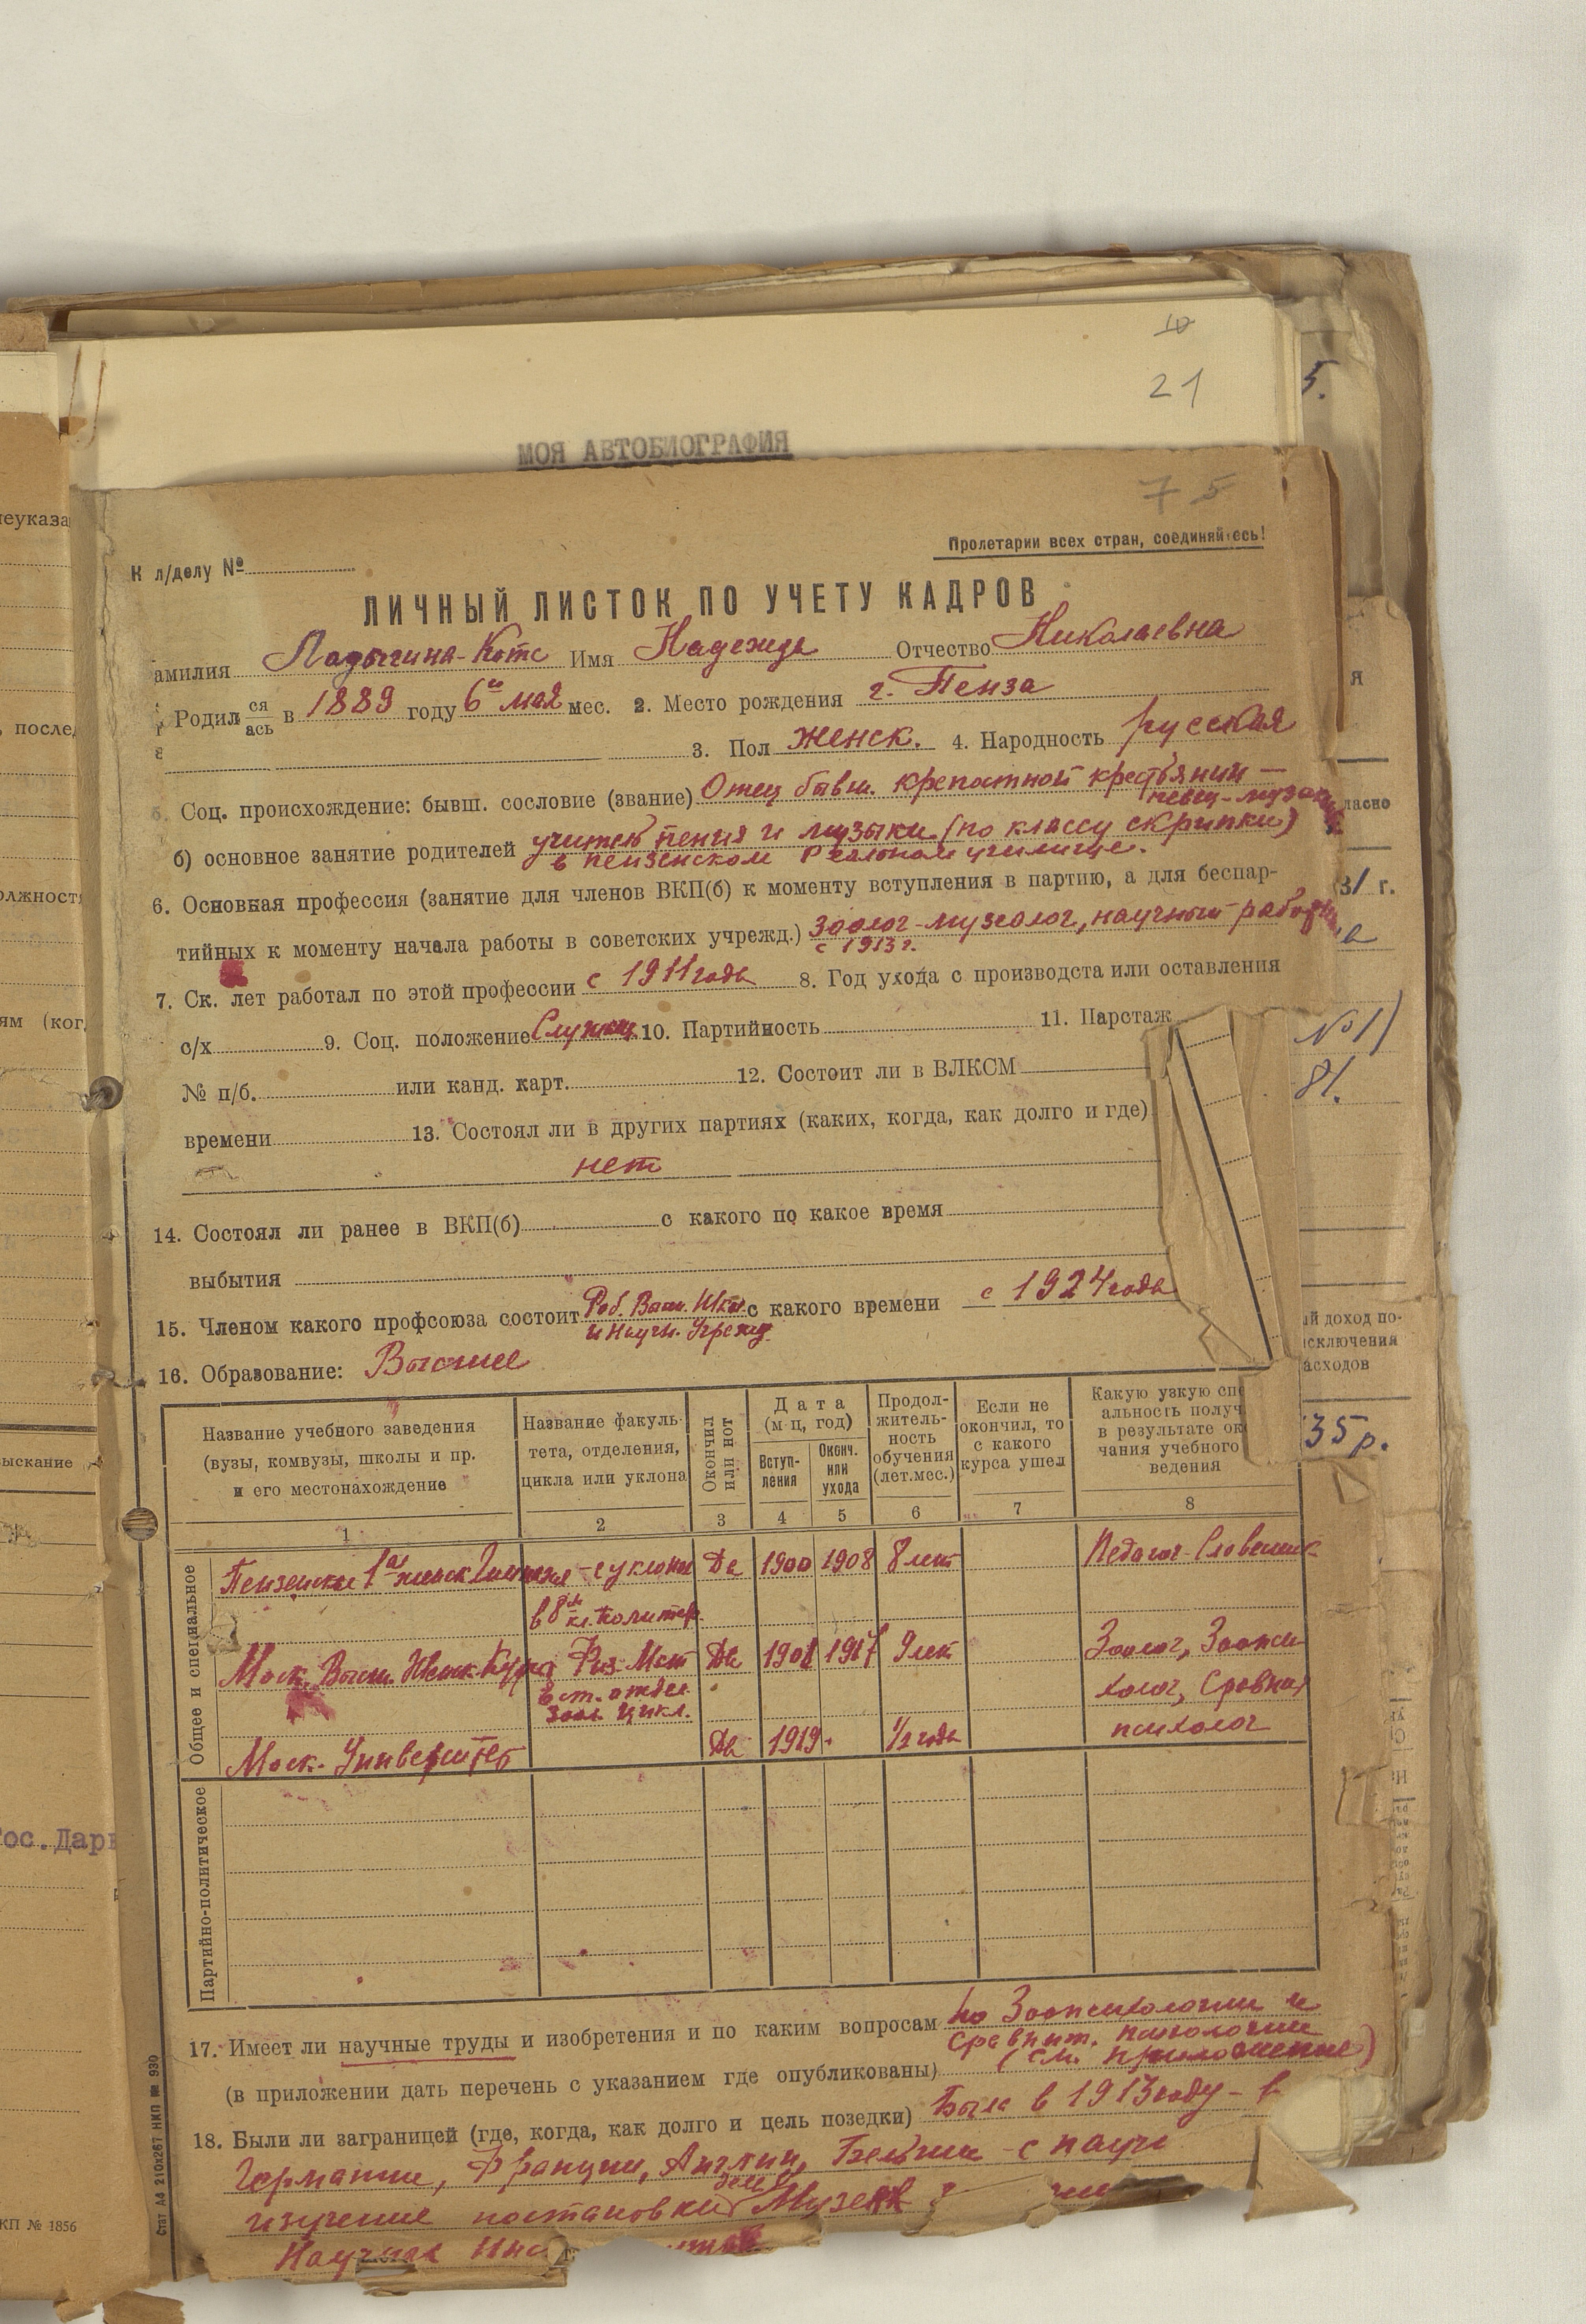 10
21
5.
МОЯ АВТОБИОГРАФИЯ
7 5
Пролетарии всех стран, соединяйтесь!
К л/делу №
ЛИЧНЫЙ ЛИСТОК ПО УЧЕТУ КАДРОВ
амилия Ладыгина-Котс Имя Надежда Отчество Николаевна
Родил ся ась в 1889 году 6го мая мес. 2. Место рождения г. Пенза
3. Пол женск. 4. Народность русская
Соц. происхождение: бывш. сословие (звание) Отец бывш. крепостной крестьянин —
певец-музык
б) основное занятие родителей учитель пения и музыки (по классу скрипки)
в пензенском Реальном училище.
6. Основная профессия (занятие для членов ВКП(б) к моменту вступления в партию, а для беспар-
тийных к моменту начала работы в советских учрежд.) Зоолог-музеолог, научный работн
с 1913 г.
7. Ск. лет работал по этой профессии с 1911 года 8. Год ухода с производста или оставления
с/х 9. Соц. положение Служащ. 10. Партийность 11. Парстаж
№ п/б. или канд. карт. 12. Состоит ли в ВЛКСМ
времени 13. Состоял ли в других партиях (каких, когда, как долго и где)
нет
14. Состоял ли ранее в ВКП(б) с какого по какое время
выбытия
15. Членом какого профсоюза состоит Раб. Высш. Шко с какого времени с 1924 года
и Научн. Учрежд.
16. Образование: Высшее
Название учебного заведения (вузы, комвузы, школы и пр. и его местонахождение
Название факуль- тета, отделения, цикла или уклона
Окончил или нот
Дата (м-ц, год)
Вступ- ления
Оконч. или ухода
Продол- житель- ность обучения (лет.мес.)
Если не окончил, то с какого курса ушел
Какую узкую спе альность получ в результате ок чания учебного ведения
1 2 3 4 5 6 7 8
Общее и специальное
Пензенская 1ая женск Гимназия - с уклоном Да 1900 1908 8 лет Педагог-Словесник
в 8м кл.
Моск. Высш. Женск. Курсы Физ-Мат Да 1908 1917 9 лет Зоолог, Зоопси
Ест. отдел. холог, Сравнит
Зоол. Цикл.
Моск. Университет Да 1919 1/2 года психолог
Партийно-политическое
17. Имеет ли научные труды и изобретения и по каким вопросам по Зоопсихологии и
сравнит. психологии
(в приложении дать перечень с указанием где опубликованы) (см. приложение)
18. Были ли заграницей (где, когда, как долго и цель поездки) Была в 1913 году - в
Германии, Франции, Англии, Бельгии - с научн
изучение постановки дела Музеев
Научных
Стат А4 210х267 НКП № 930
еуказа
, послед
олжност
ям (ког
ыскание
ос.Дарв
КП № 1856
я
ласно
31 г.
№ 1)
81.
ый доход по-
сключения
асходов
35 р.